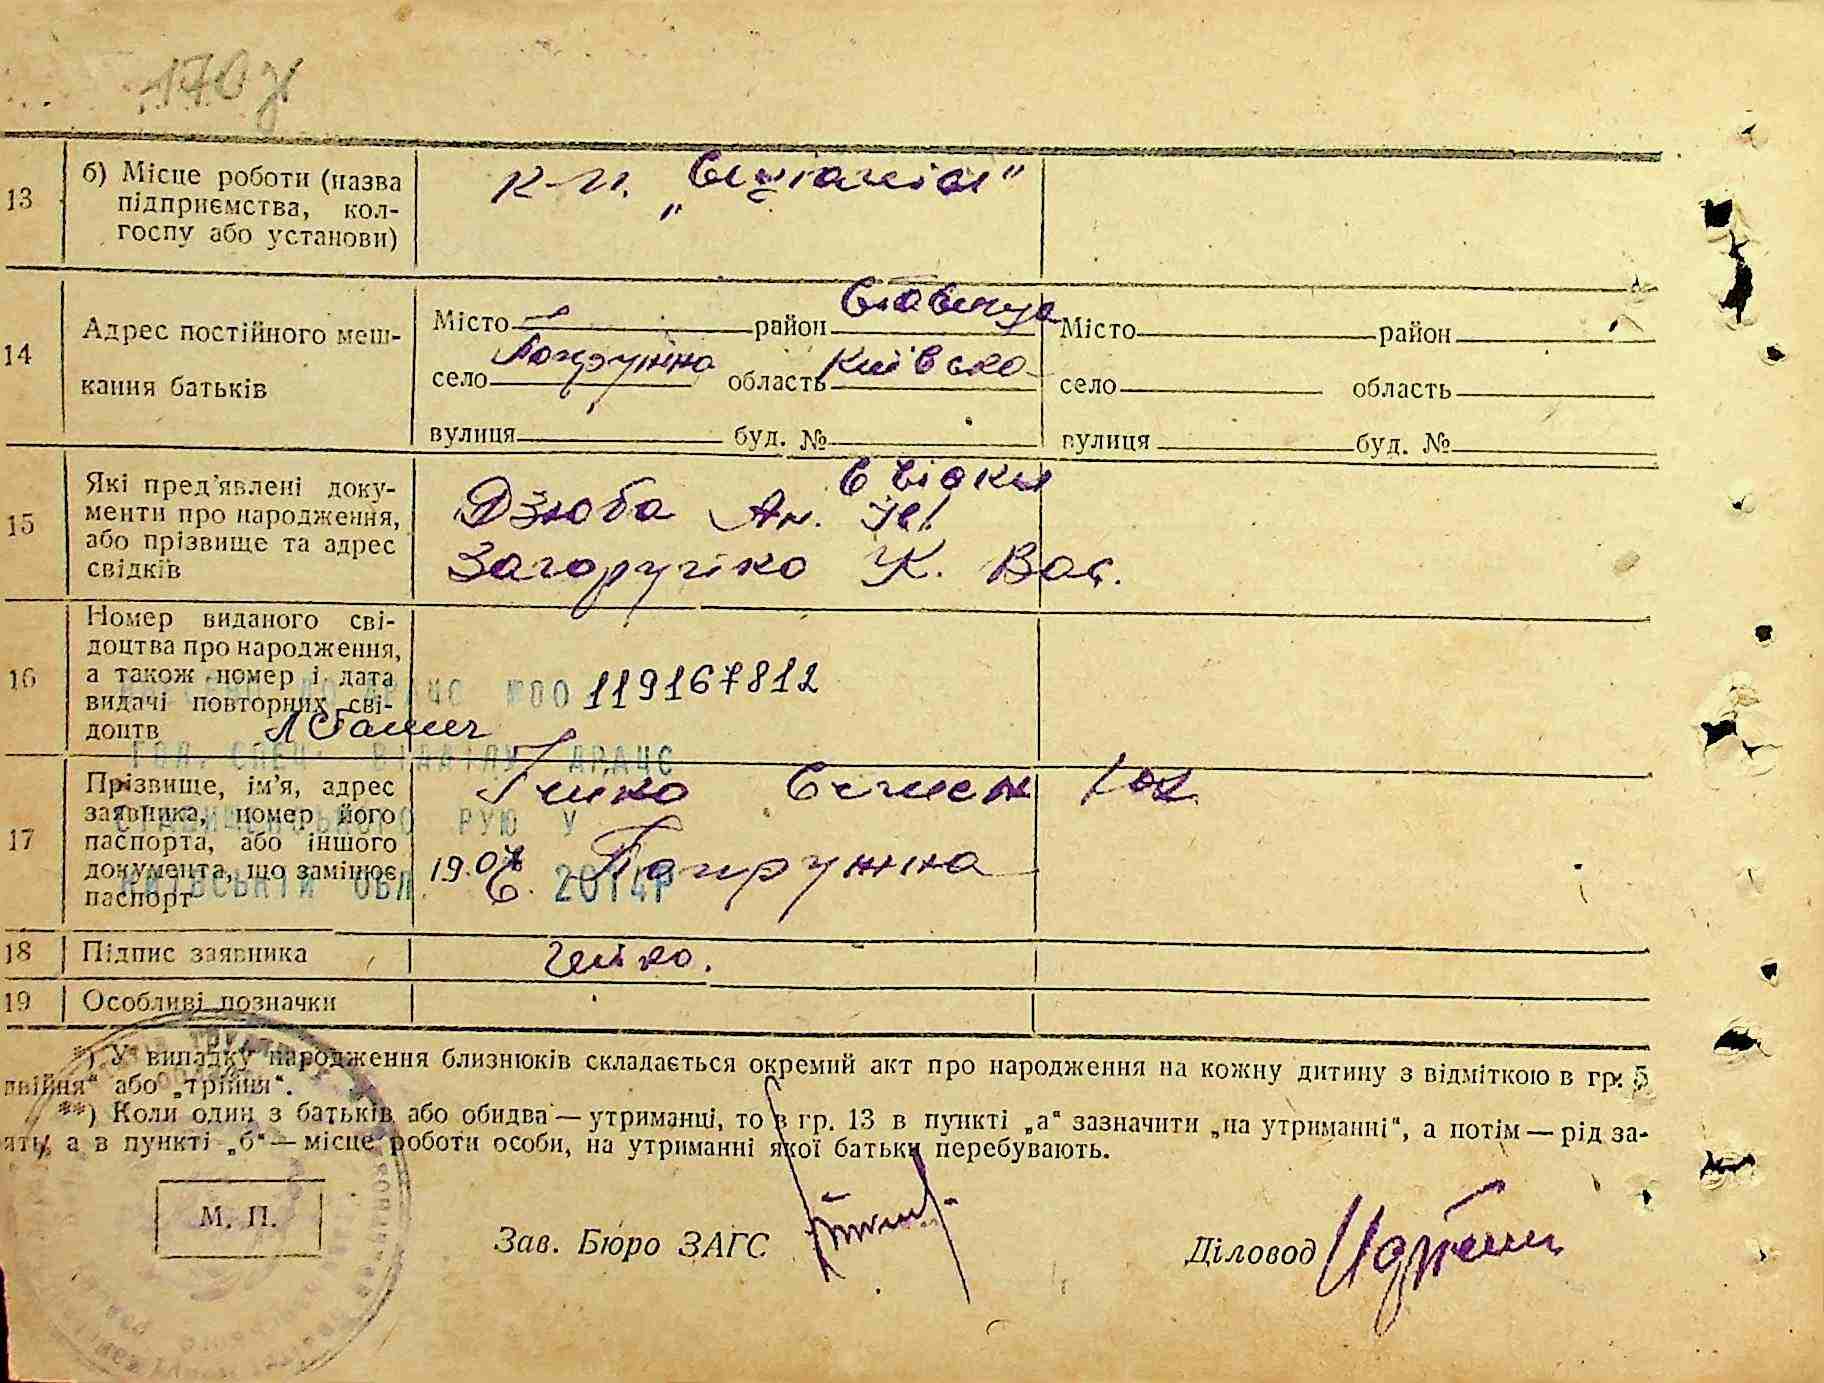 170
13 б) Місце роботи (назва підприємства, кол-
госпу або установи)
к-п.
14 Адрес постійного меш-
кання батьків
Місто район
село Погружна область Київсько
вулиця буд. №
Місто район
село область
вулиця буд. №
15 Які пред'явлені доку-
менти про народження,
або прізвище та адрес
свідків
Свідки
Дзюба Ан.
Загоруйко К. Вас.
16 Номер виданого сві-
доцтва про народження,
а також номер і дата
видачі повторних сві-
доцтв
ДРАЦС №00119167812
ГОЛ. СПЕЦ. ВІДДІЛУ ДРАЦС
СТАВИЩЕНСЬКОГО РУЮ У
КИЇВСЬКІЙ ОБЛ. 2014Р
17 Прізвище, ім'я, адрес
заявника, номер його
паспорта, або іншого
документа, що замінює
паспорт
Гейко Семен
Погружна
18 Підпис заявника
Гейко.
19 Особливі позначки
*) У випадку народження близнюків складається окремий акт про народження на кожну дитину з відміткою в гр. 5
двійня" або „трійня".
**) Коли один з батьків або обидва — утриманці, то в гр. 13 в пункті „а" зазначити „на утриманні", а потім — рід за-
ять, а в пункті „б" — місце роботи особи, на утриманні якої батьки перебувають.
М. П.
Зав. Бюро ЗАГС
Діловод